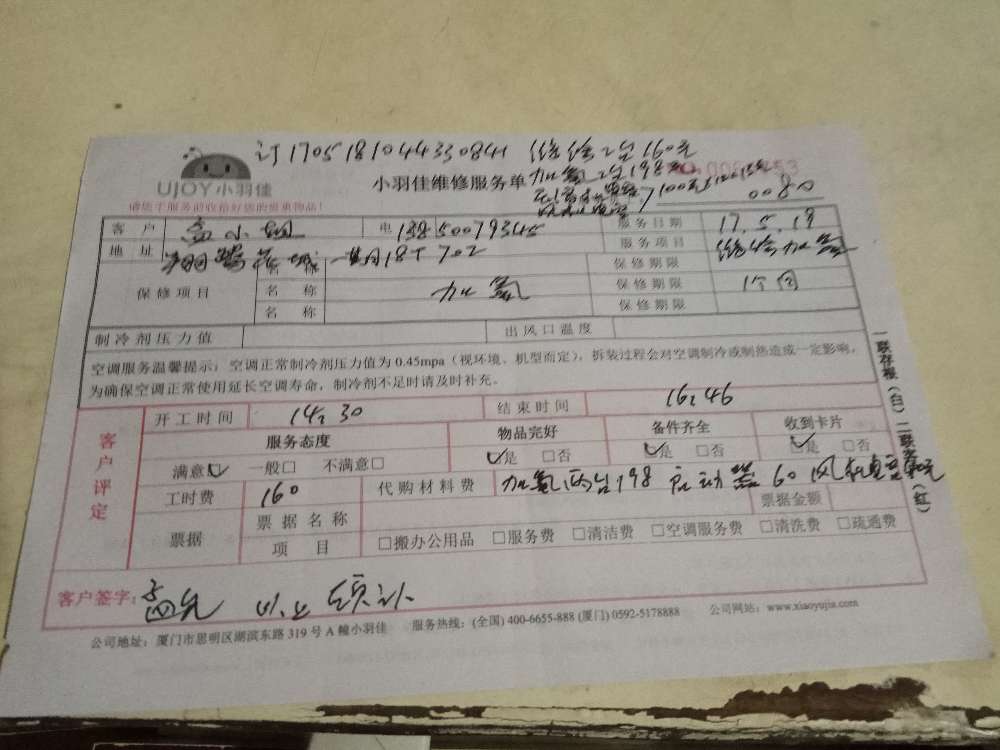 订1705181044330841 维修2台160元
UJOY小羽佳 小羽佳维修服务单 加氟2台198元
0080
请您于服务前收拾好您的贵重物品!
客 户 孟小姐 电 13850079345 服务日期 17.5.19
地 址 18 702 服务项目 维修加氟
保修项目 名 称 保修期限
名 称 加氟 保修期限 1个月
名 称 保修期限
制冷剂压力值 出风口温度
空调服务温馨提示:空调正常制冷剂压力值为0.45mpa(视环境、机型而定),拆装过程会对空调制冷或制热造成一定影响,
为确保空调正常使用延长空调寿命,制冷剂不足时请及时补充。
一联存根(白)二联客(红)
客户评定
开工时间 14:30 结束时间 16:46
服务态度 物品完好 备件齐全 收到卡片
满意☑ 一般□ 不满意□ ☑是 □否 ☑是 □否 ☑是 □否
工时费 160 代购材料费 加氟两台198 启动器60 风机
票据 票据名称 票据金额
项 目 □搬办公用品 □服务费 □清洁费 □空调服务费 □清洗费 □疏通费
客户签字:
公司地址:厦门市思明区湖滨东路319号A幢小羽佳 服务热线:(全国) 400-6655-888 (厦门) 0592-5178888 公司网站:www.xiaoyujia.com